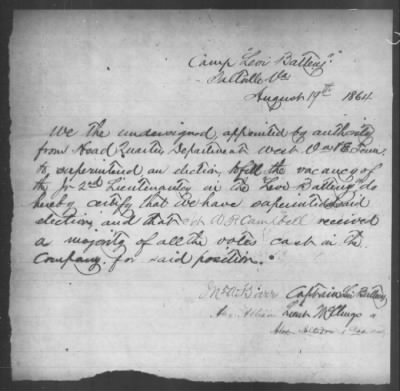 Camp "Levi Battery"
Saltville Va
August 19th 1864
We the undersigned appointed by authority
from Head Quarters Department West. Va & E. Tenn
to superintend an election to fill the vacancy of
the Jr 2nd Lieutenantcy in the Levi Battery do
hereby certify that we have superintended said
election and that W. H. Campbell received
a majority of all the votes cast in the
Company for said position.
Jno A Barr Captain Levi Battery
Lieut McClung's "